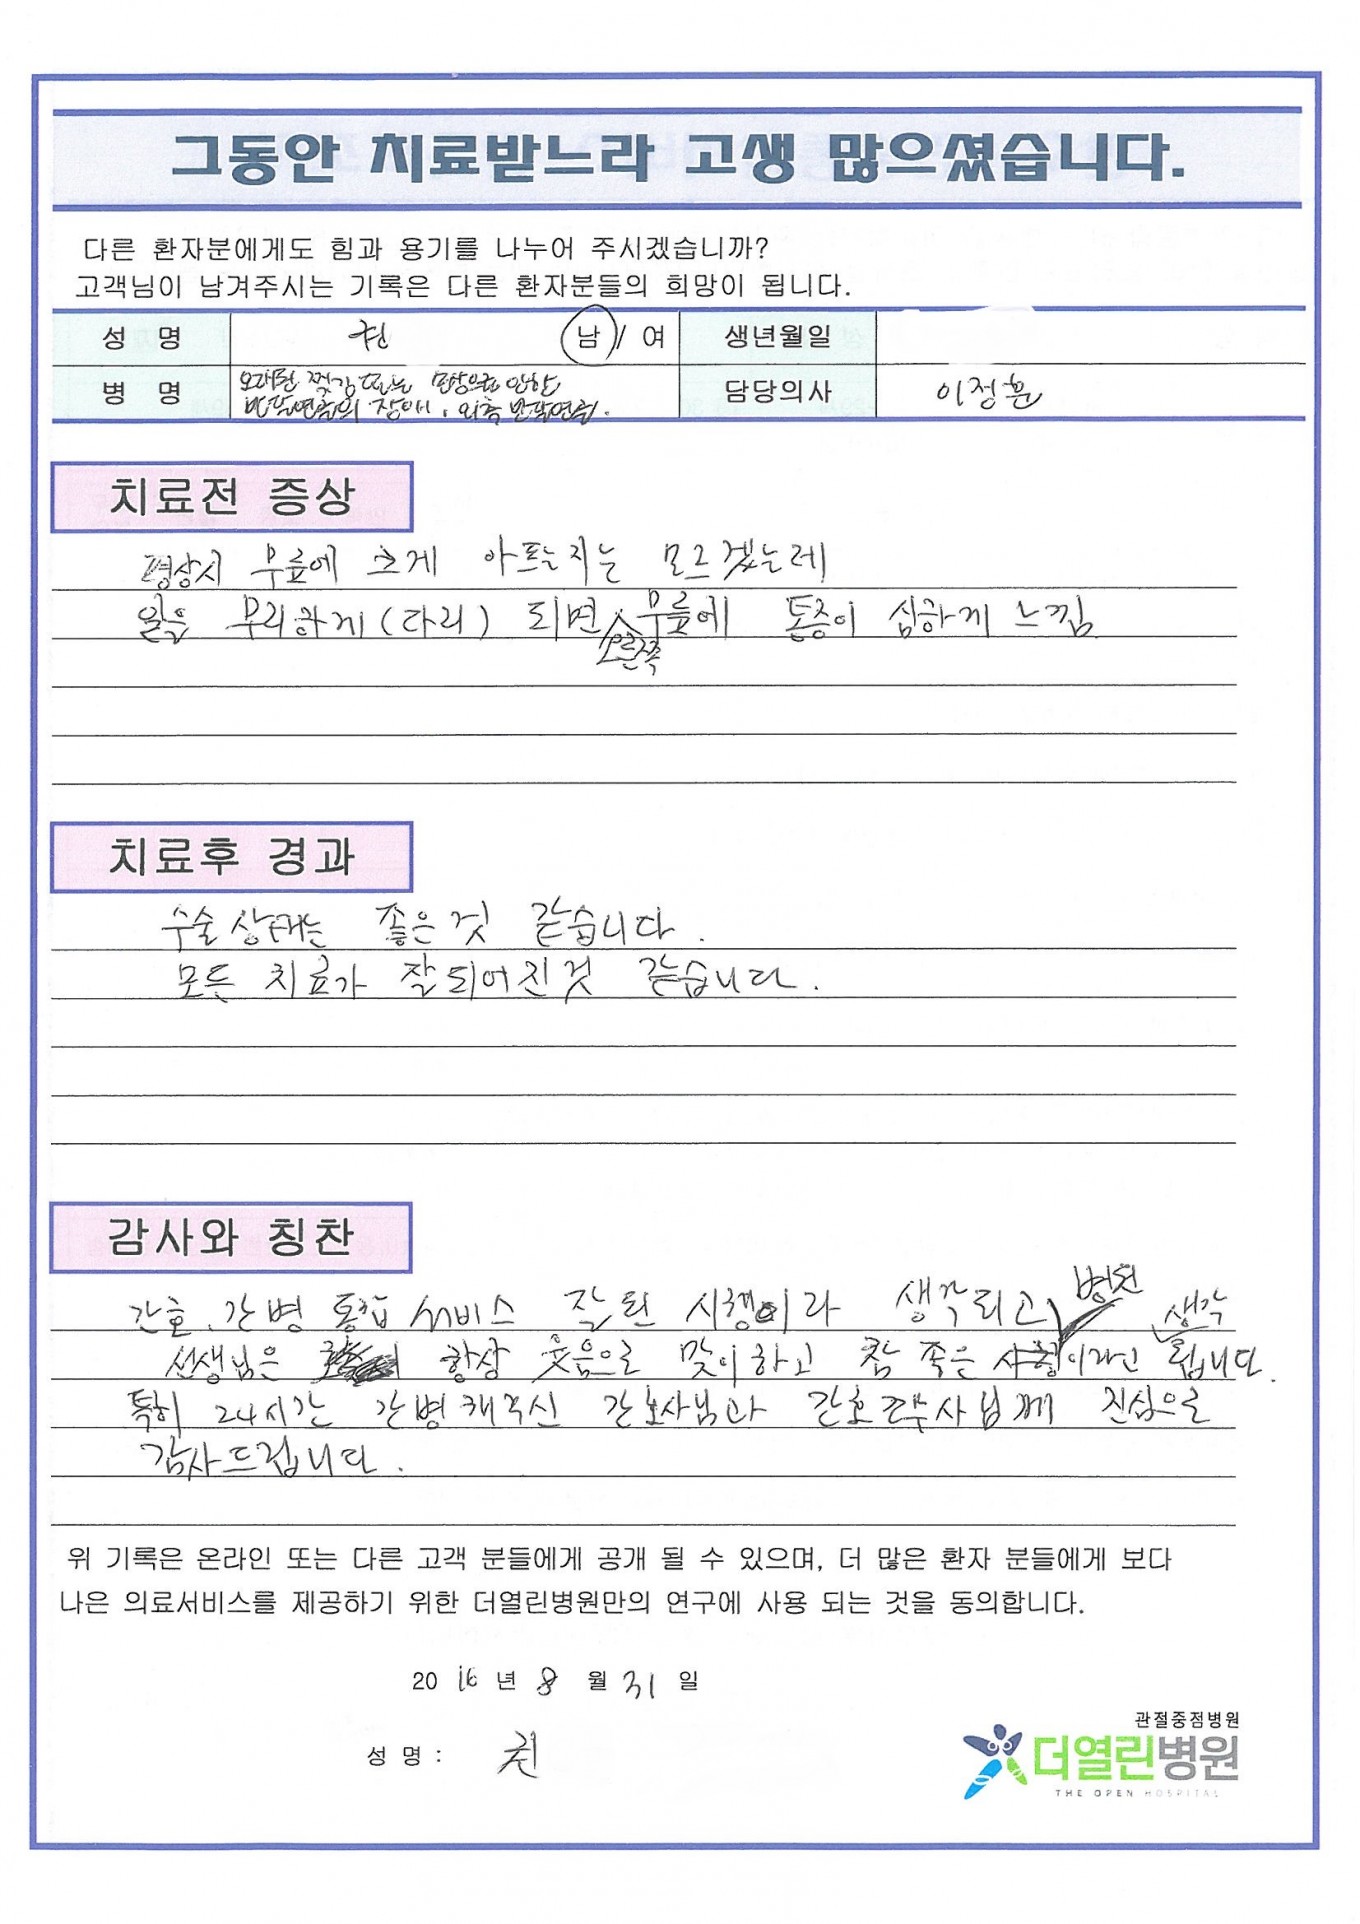 그동안 치료받느라 고생 많으셨습니다.
다른 환자분에게도 힘과 용기를 나누어 주시겠습니까?
고객님이 남겨주시는 기록은 다른 환자분들의 희망이 됩니다.
성 명 권 남 / 여 생년월일
병 명 오래된 찢김 또는 파상으로 인한 담당의사 이정훈
반달연골의 장애, 외측 반달연골.
치료전 증상
평상시 무릎에 크게 아프는지는 모르겠는데
일을 무리하게(다리) 되면 오른쪽 무릎에 통증이 심하게 느낌
치료후 경과
수술 상태는 좋은것 같습니다.
모든 치료가 잘되어진것 같습니다.
감사와 칭찬
간호.간병 통합 서비스 잘된 시행이라 생각되고, 병원
선생님은 항상 웃음으로 맞이하고 참 좋은 이라고 생각 됩니다.
특히 24시간 간병해주신 간호사님과 간호조무사님께 진심으로
감사드립니다.
위 기록은 온라인 또는 다른 고객 분들에게 공개 될 수 있으며, 더 많은 환자 분들에게 보다
나은 의료서비스를 제공하기 위한 더열린병원만의 연구에 사용 되는 것을 동의합니다.
2016 년 8 월 31 일
성 명 : 권
관절중점병원
더열린병원
THE OPEN HOSPITAL